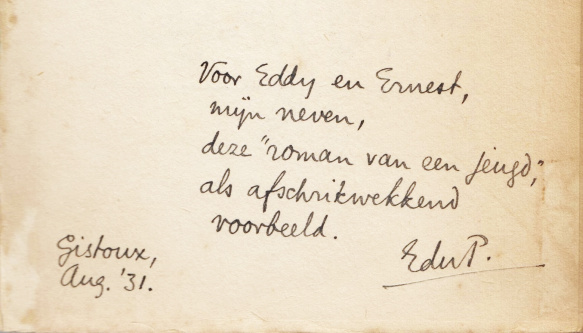 Voor Eddy en Ernest,
mijn neven,
deze "roman van een jeugd,"
als afschrikwekkend
voorbeeld.
Gistoux,
Aug. '31.
EduP.